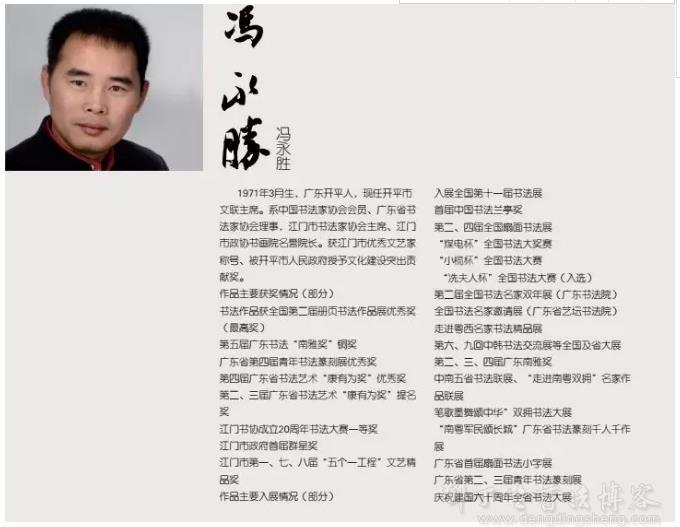 冯
永
勝
冯永胜
1971年3月生，广东开平人，现任开平市
文联主席。系中国书法家协会会员、广东省书
法家协会理事，江门市书法家协会主席、江门
市政协书画院名誉院长。获江门市优秀文艺家
称号、被开平市人民政府授予文化建设突出贡
献奖。
作品主要获奖情况（部分）
书法作品获全国第二届册页书法作品展优秀奖
（最高奖）
第五届广东书法“南雅奖”铜奖
广东省第四届青年书法篆刻展优秀奖
第四届广东省书法艺术“康有为奖”优秀奖
第二、三届广东省书法艺术“康有为奖”提名
奖
江门书协成立20周年书法大赛一等奖
江门市政府首届群星奖
江门市第一、七、八届“五个一工程”文艺精
品奖
作品主要入展情况（部分）
入展全国第十一届书法展
首届中国书法兰亭奖
第二、四届全国扇面书法展
“煤电杯”全国书法大奖赛
“小榄杯”全国书法大赛
“冼夫人杯”全国书法大赛（入选）
第二届全国书法名家双年展（广东书法院）
全国书法名家邀请展（广东省艺坛书法院）
走进粤西名家书法精品展
第六、九回中韩书法交流展等全国及省大展
第二、三、四届广东南雅奖
中南五省书法联展、“走进南粤双拥”名家作
品联展
笔歌墨舞颂中华”双拥书法大展
“南粤军民颂长城”广东省书法篆刻千人千作
展
广东省首届扇面书法小字展
广东省第二、三届青年书法篆刻展
庆祝建国六十周年全省书法大展
www.dengdingsheng.com